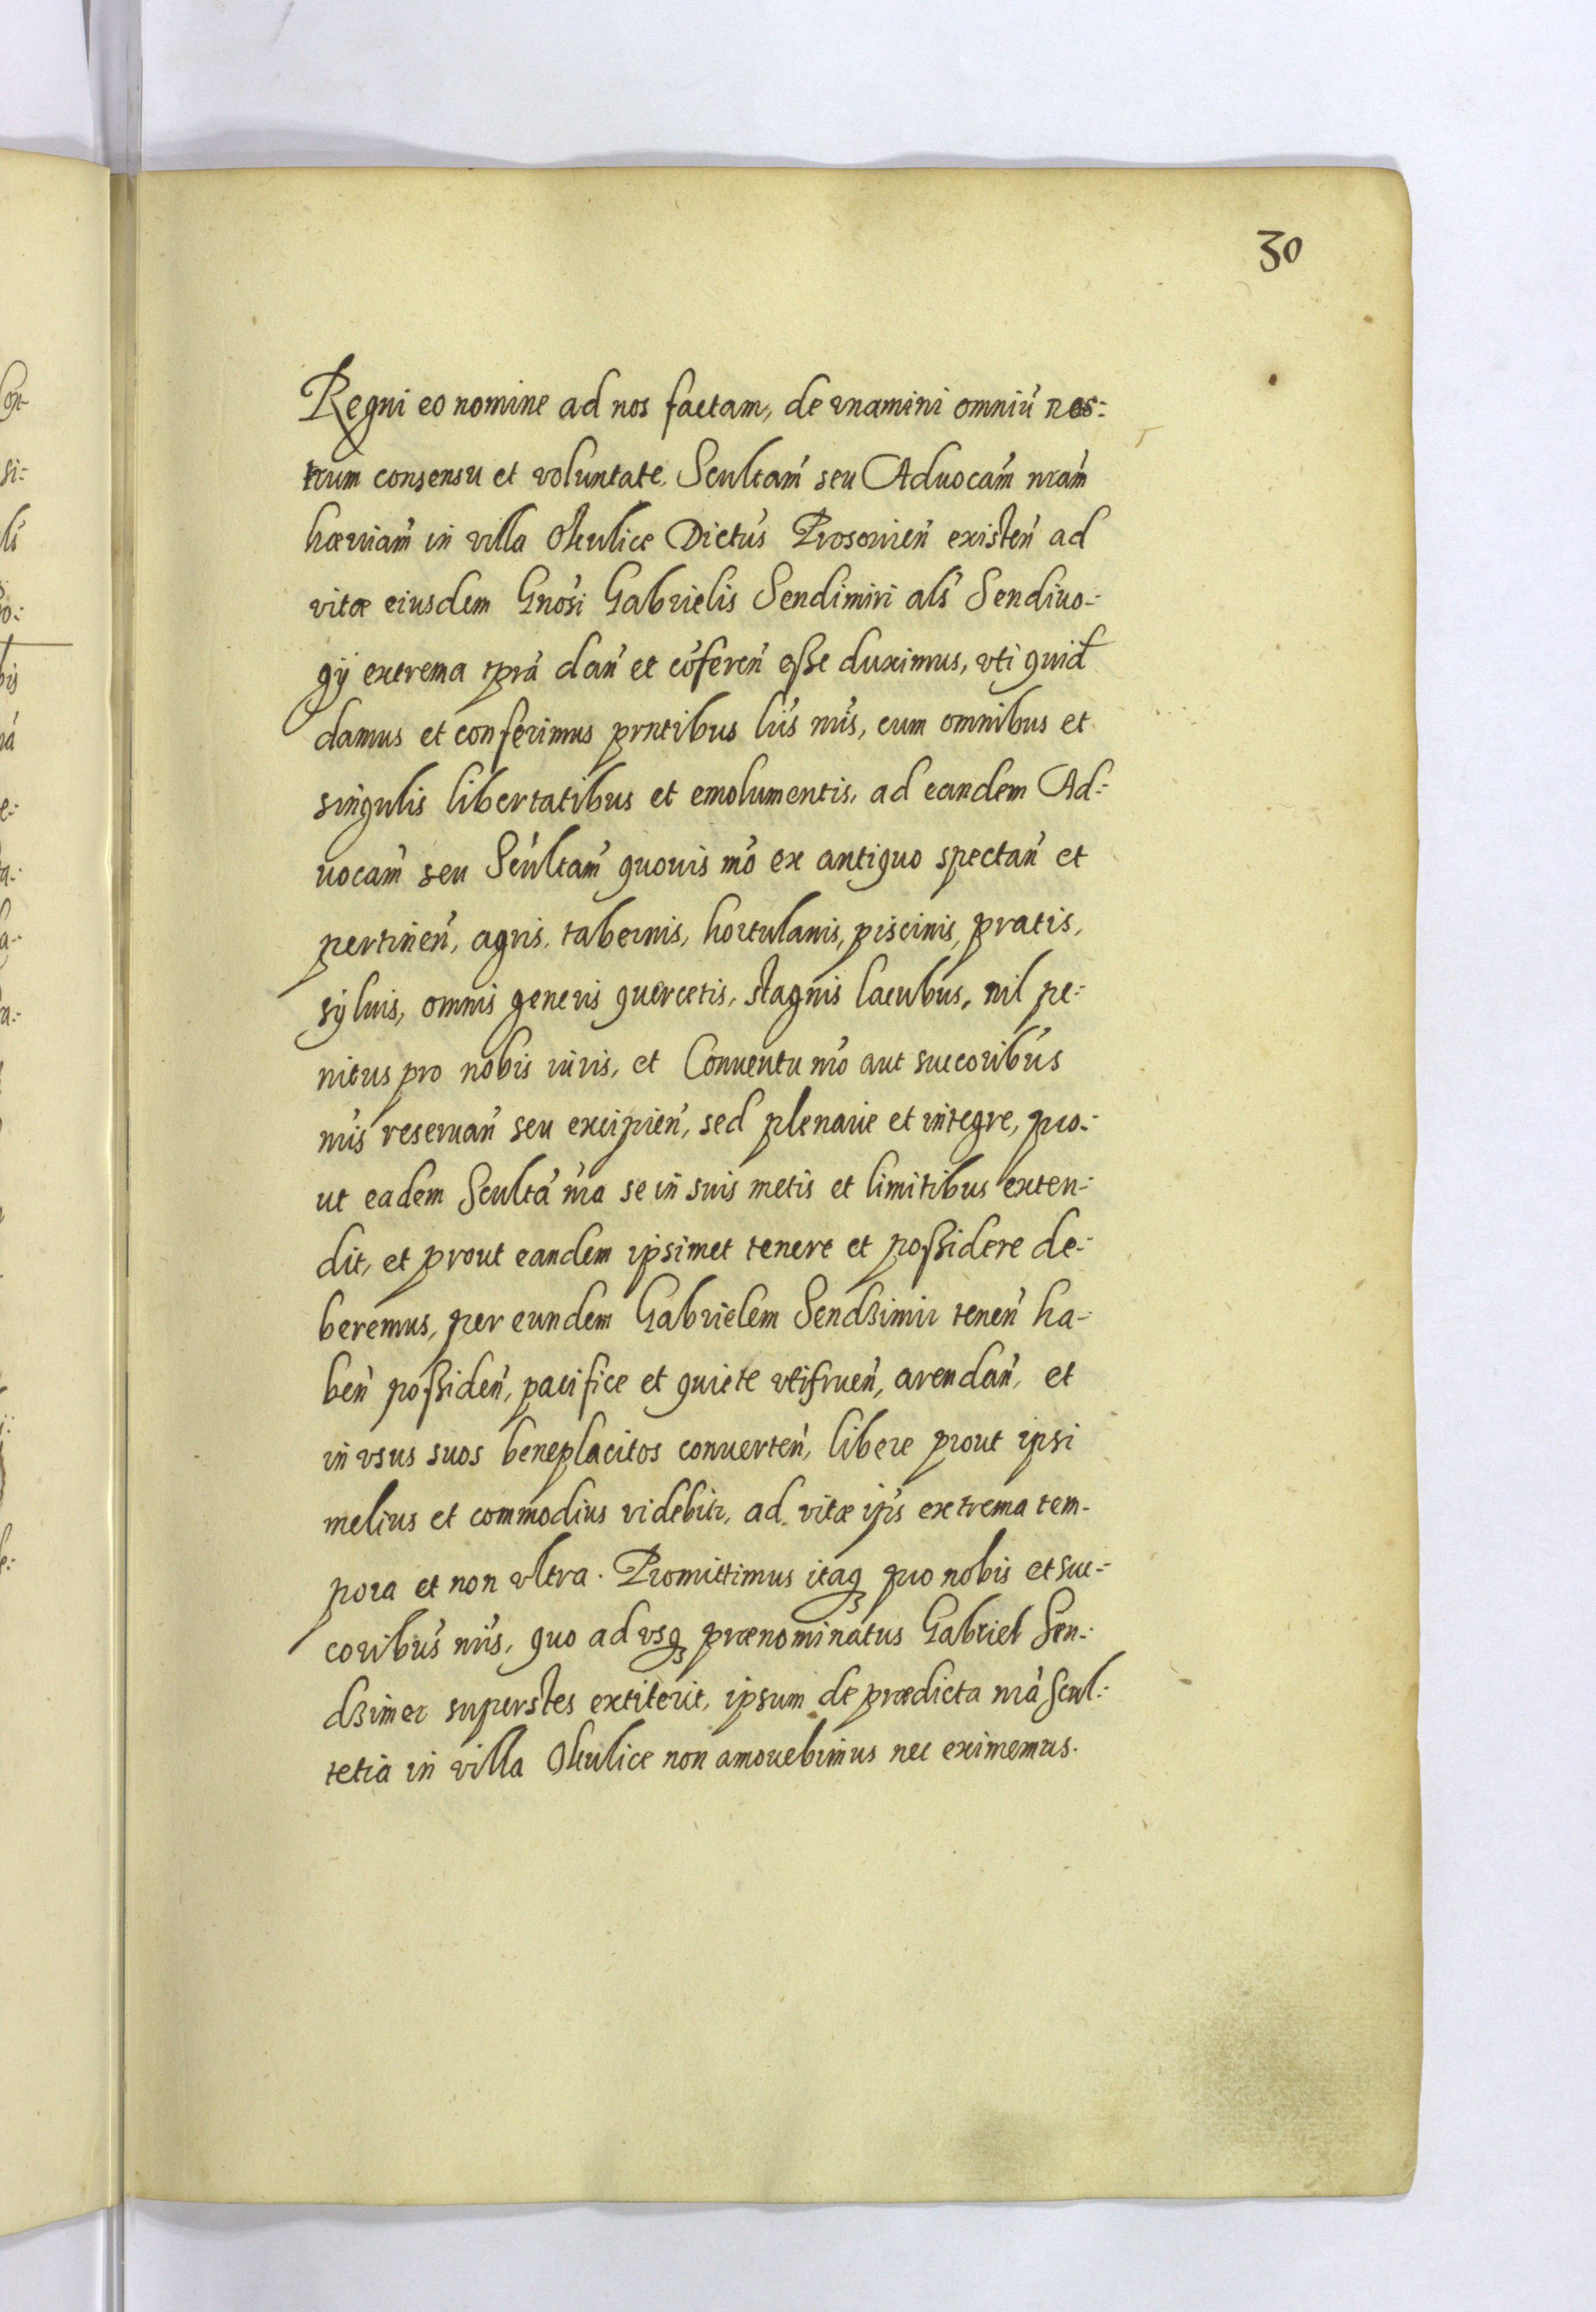 30
Regni eo nomine ad nos factam, de vnamini omniu̓ nos=
trum consensu et voluntate. Scultam̓ seu Aduocam̓ nram̓
hæreviam̓ in villa Okulice Dictu̓s Prosovien̓ existen̓ ad
vitæ eiusdem Gno̓si Gabrielis Sendimiri als̓ Sendiuo=
gÿ extrema tpra̓ dan̓ et co̓feren̓ eſse duximus, vti quid̓
damus et conferimus prntibus lri̓s nri̓s, cum omnibus et
singulis libertatibus et emolumentis, ad eandem Ad=
uocam̓ seu Scu̓ltam̓ quouis mo̓ ex antiquo spectan̓ et
pertinen̓, agris, tabernis, hortulanis, piscinis, pratis,
syluis, omnis generis quercetis, stagnis lacubus, nil pe=
nitus pro nobis iuris, et Conuentu nro̓ aut succoribu̓s
nri̓s reseruan̓ seu excipien̓, sed plenarie et integre, pro=
ut eadem Sculta̓ nra̓ se in suis metis et limitibus exten=
dit, et prout eandem ipsimet tenere et poſsidere de=
beremus, per eundem Gabrielem Sendzimir tenen̓ ha=
ben̓ poſsiden̓, pacifice et quiete vtifruen̓, arendan̓, et
in vsus suos beneplacitos conuerten̓, libere prout ipsi
melius et commodius videbitr, ad vitæ ip̓s extrema tem-
pora et non vltra. Promittimus itaqꝫ pro nobis et suc=
coribu̓s nri̓s, quo ad vsqꝫ prænominatus Gabriel Sen=
dzimer superstes extiterit, ipsum de prædicta nra̓ Scul=
tetia in villa Okulice non amouebimus nec eximemus.